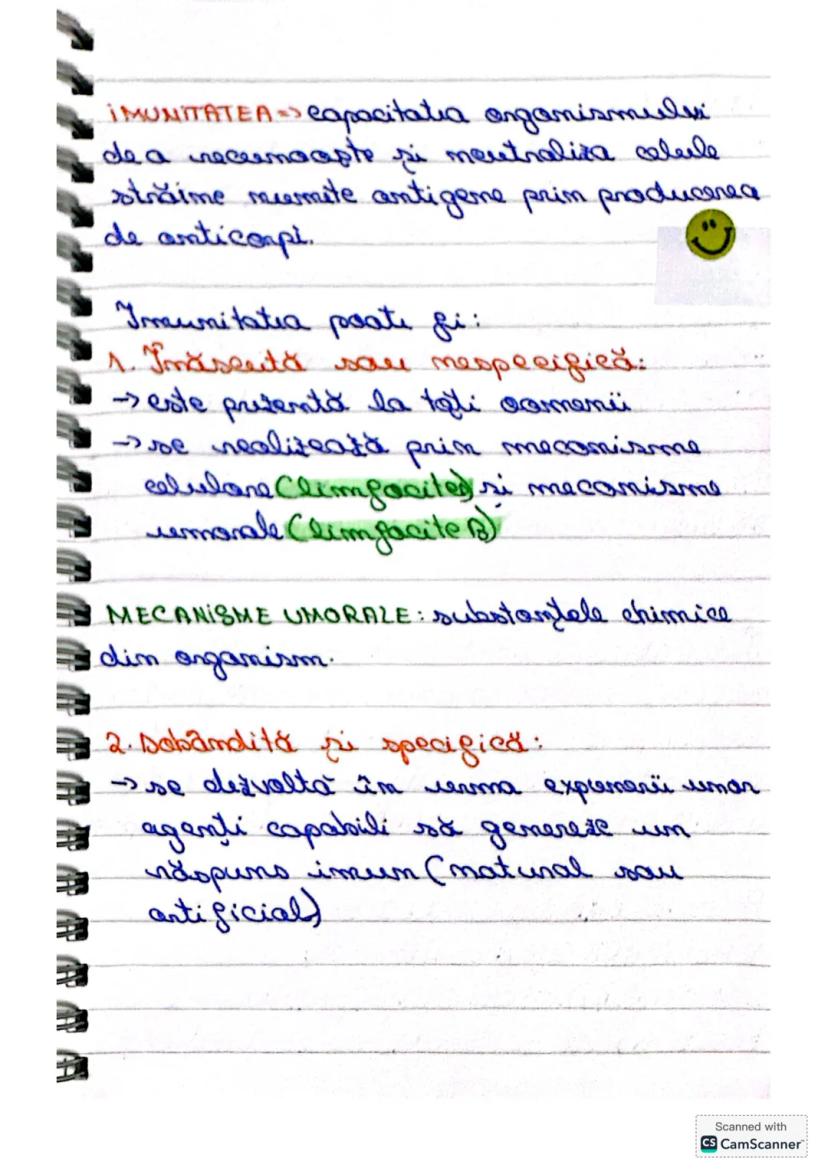 IMUNITATEA => capacitatea organismului
de a recunoaște și neutraliza celule
străine numite antigene prin producerea
de anticorpi.
Imunitatea poate fi:
1. Înăscută sau nespecifică:
-> este prezentă la toți oamenii
-> se realizează prin mecanisme
celulare (limfocite) și mecanisme
umorale (limfocite B)
MECANISME UMORALE: substanțele chimice
din organism.
2. Dobândită și specifică:
-> se dezvoltă în urma expunerii unor
agenți capabili să genereze un
răspuns imun (natural sau
artificial)
Scanned with
CS CamScanner